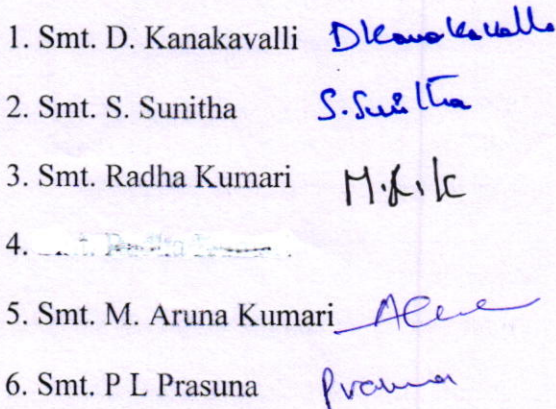 1. Smt. D. Kanakavalli Dkanakavalli
2. Smt. S. Sunitha S. Sunitha
3. Smt. Radha Kumari M.R.K
4.
5. Smt. M. Aruna Kumari
6. Smt. P L Prasuna Prasuna